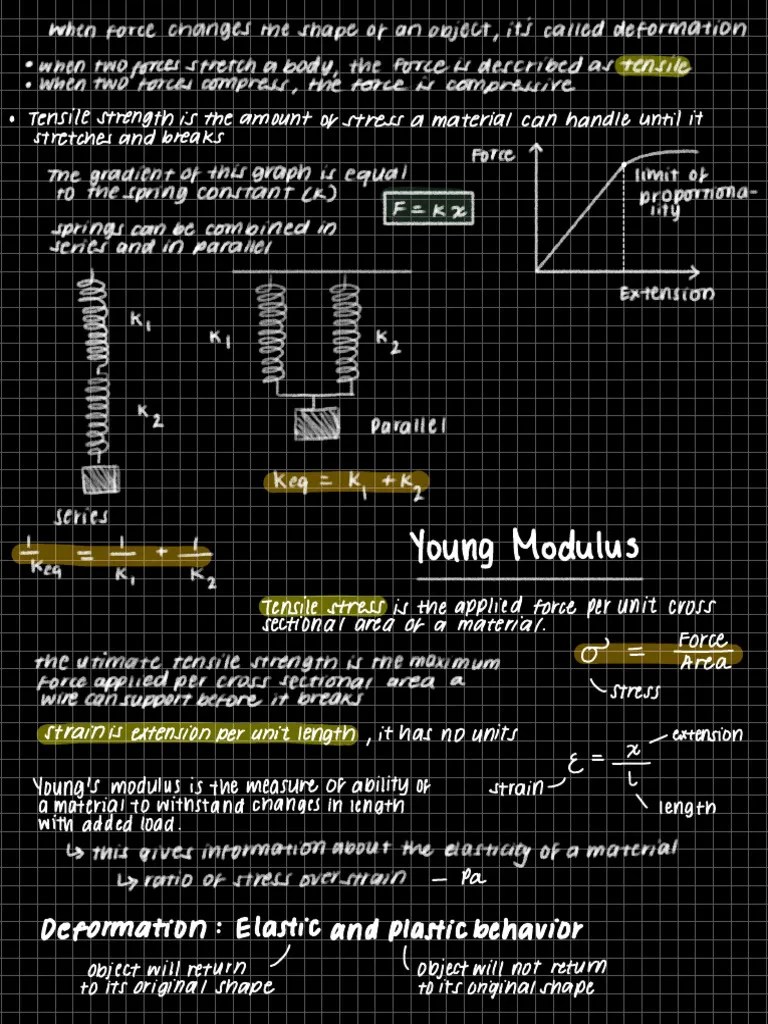 When force changes the shape of an object, it's called deformation
• when two forces stretch a body, the force is described as tensile
• when two forces compress, the force is compressive
• Tensile strength is the amount of stress a material can handle until it
stretches and breaks
The gradient of this graph is equal
to the spring constant (K)
F = K x
springs can be combined in
series and in parallel
Force
limit of
proportiona-
lity
Extension
K₁
K₂
series
1/Keq = 1/K₁ + 1/K₂
K₁
K₂
parallel
Keq = K₁ + K₂
Young Modulus
Tensile stress is the applied force per unit cross
sectional area of a material.
σ = Force/Area
stress
the utimate tensile strength is the maximum
force applied per cross sectional area a
wire can support before it breaks
strain is extension per unit length, it has no units
strain
ε = x/L
extension
length
Young's modulus is the measure of ability of
a material to withstand changes in length
with added load.
↳ this gives information about the elasticity of a material
↳ ratio of stress over strain – Pa
Deformation: Elastic and plastic behavior
object will return
to its original shape
object will not return
to its original shape